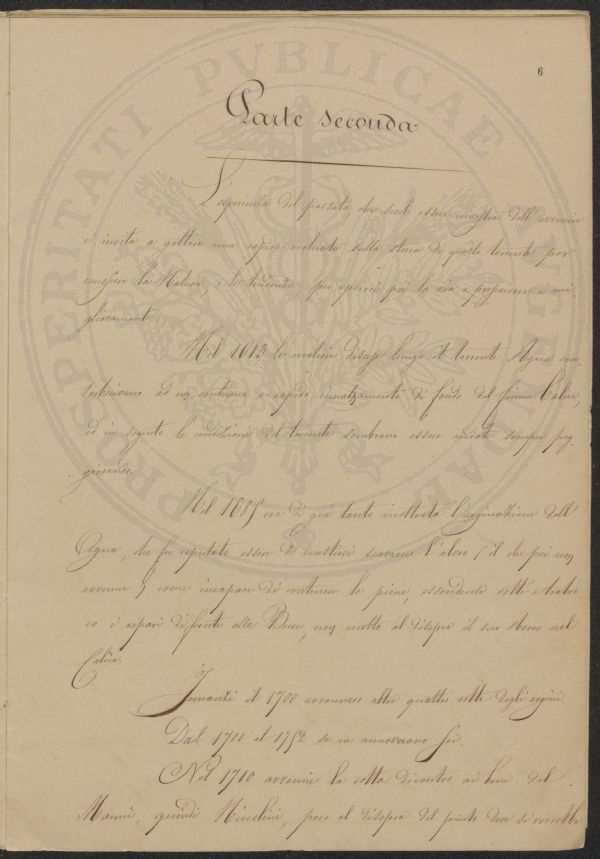 6
PROSPERITATI PVBLICAE AVGENDAE
Parte seconda
L'esperienza del passato, che suol essere maestra dell'avvenire
c'invita a gettare una rapida occhiata sulla storia di questo torrente per
conoscere la Natura, e le tendenze, per aprirci poi la via a proporne i mi-
glioramenti.
Nel 1613 le molina disup lungo il torrente Agna con-
tribuivano ad un continuo e rapido innalzamento di fondo del fiume Calice,
ed in seguito le condizioni del torrente sembrano essere andate sempre peg-
giorando.
Nel 1685 era di già tanto inoltrata l'arginazione dell'
Agna, che fu reputato essere di mestieri scavarne l'alveo (il che poi non
avvenne) come incapace di contenere le piene, essendosi rotti a traver-
so i ripari di fronte alla non molto al disopra il suo sbocco nel
Calice.
Innanzi il 1700 avvennero altre quattro rotte degli argini.
Dal 1700 al 1752 se ne annoverano sei.
Nel 1710 avvenne la rotta dicontro ai beni del
Manni, quindi Niccolini, poco al disopra del punto dove si verrebbe